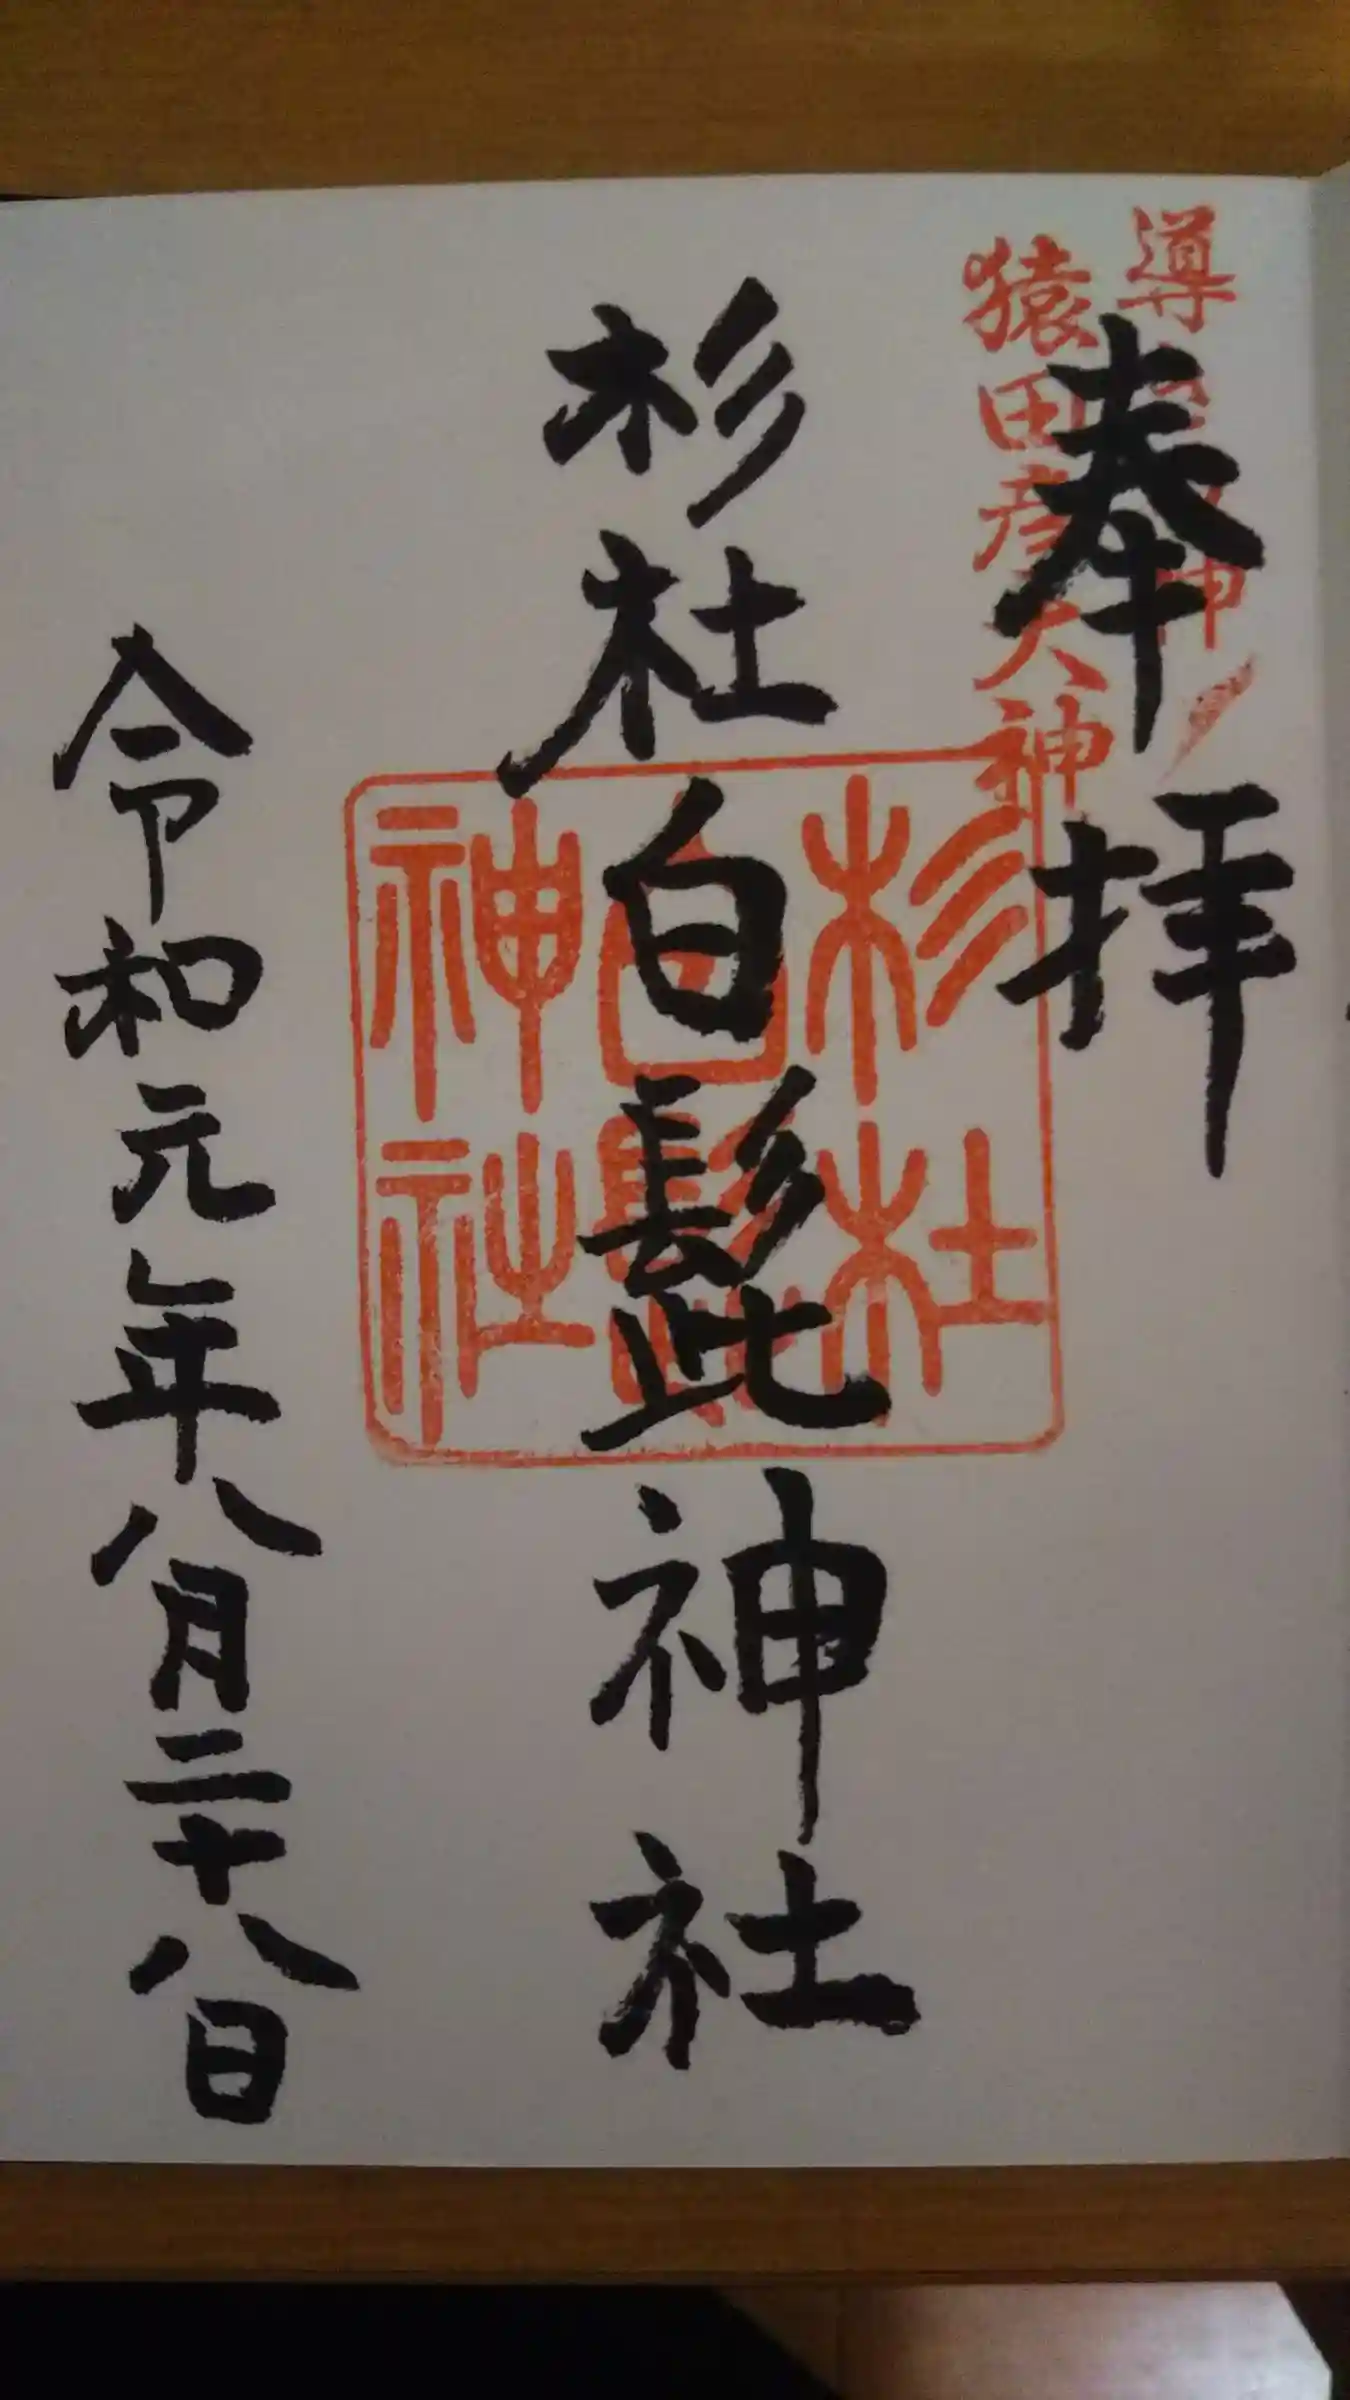 奉拝
猿田彦大神
杉杜白髭神社
杉杜
白髭
神社
令和元年八月二十八日